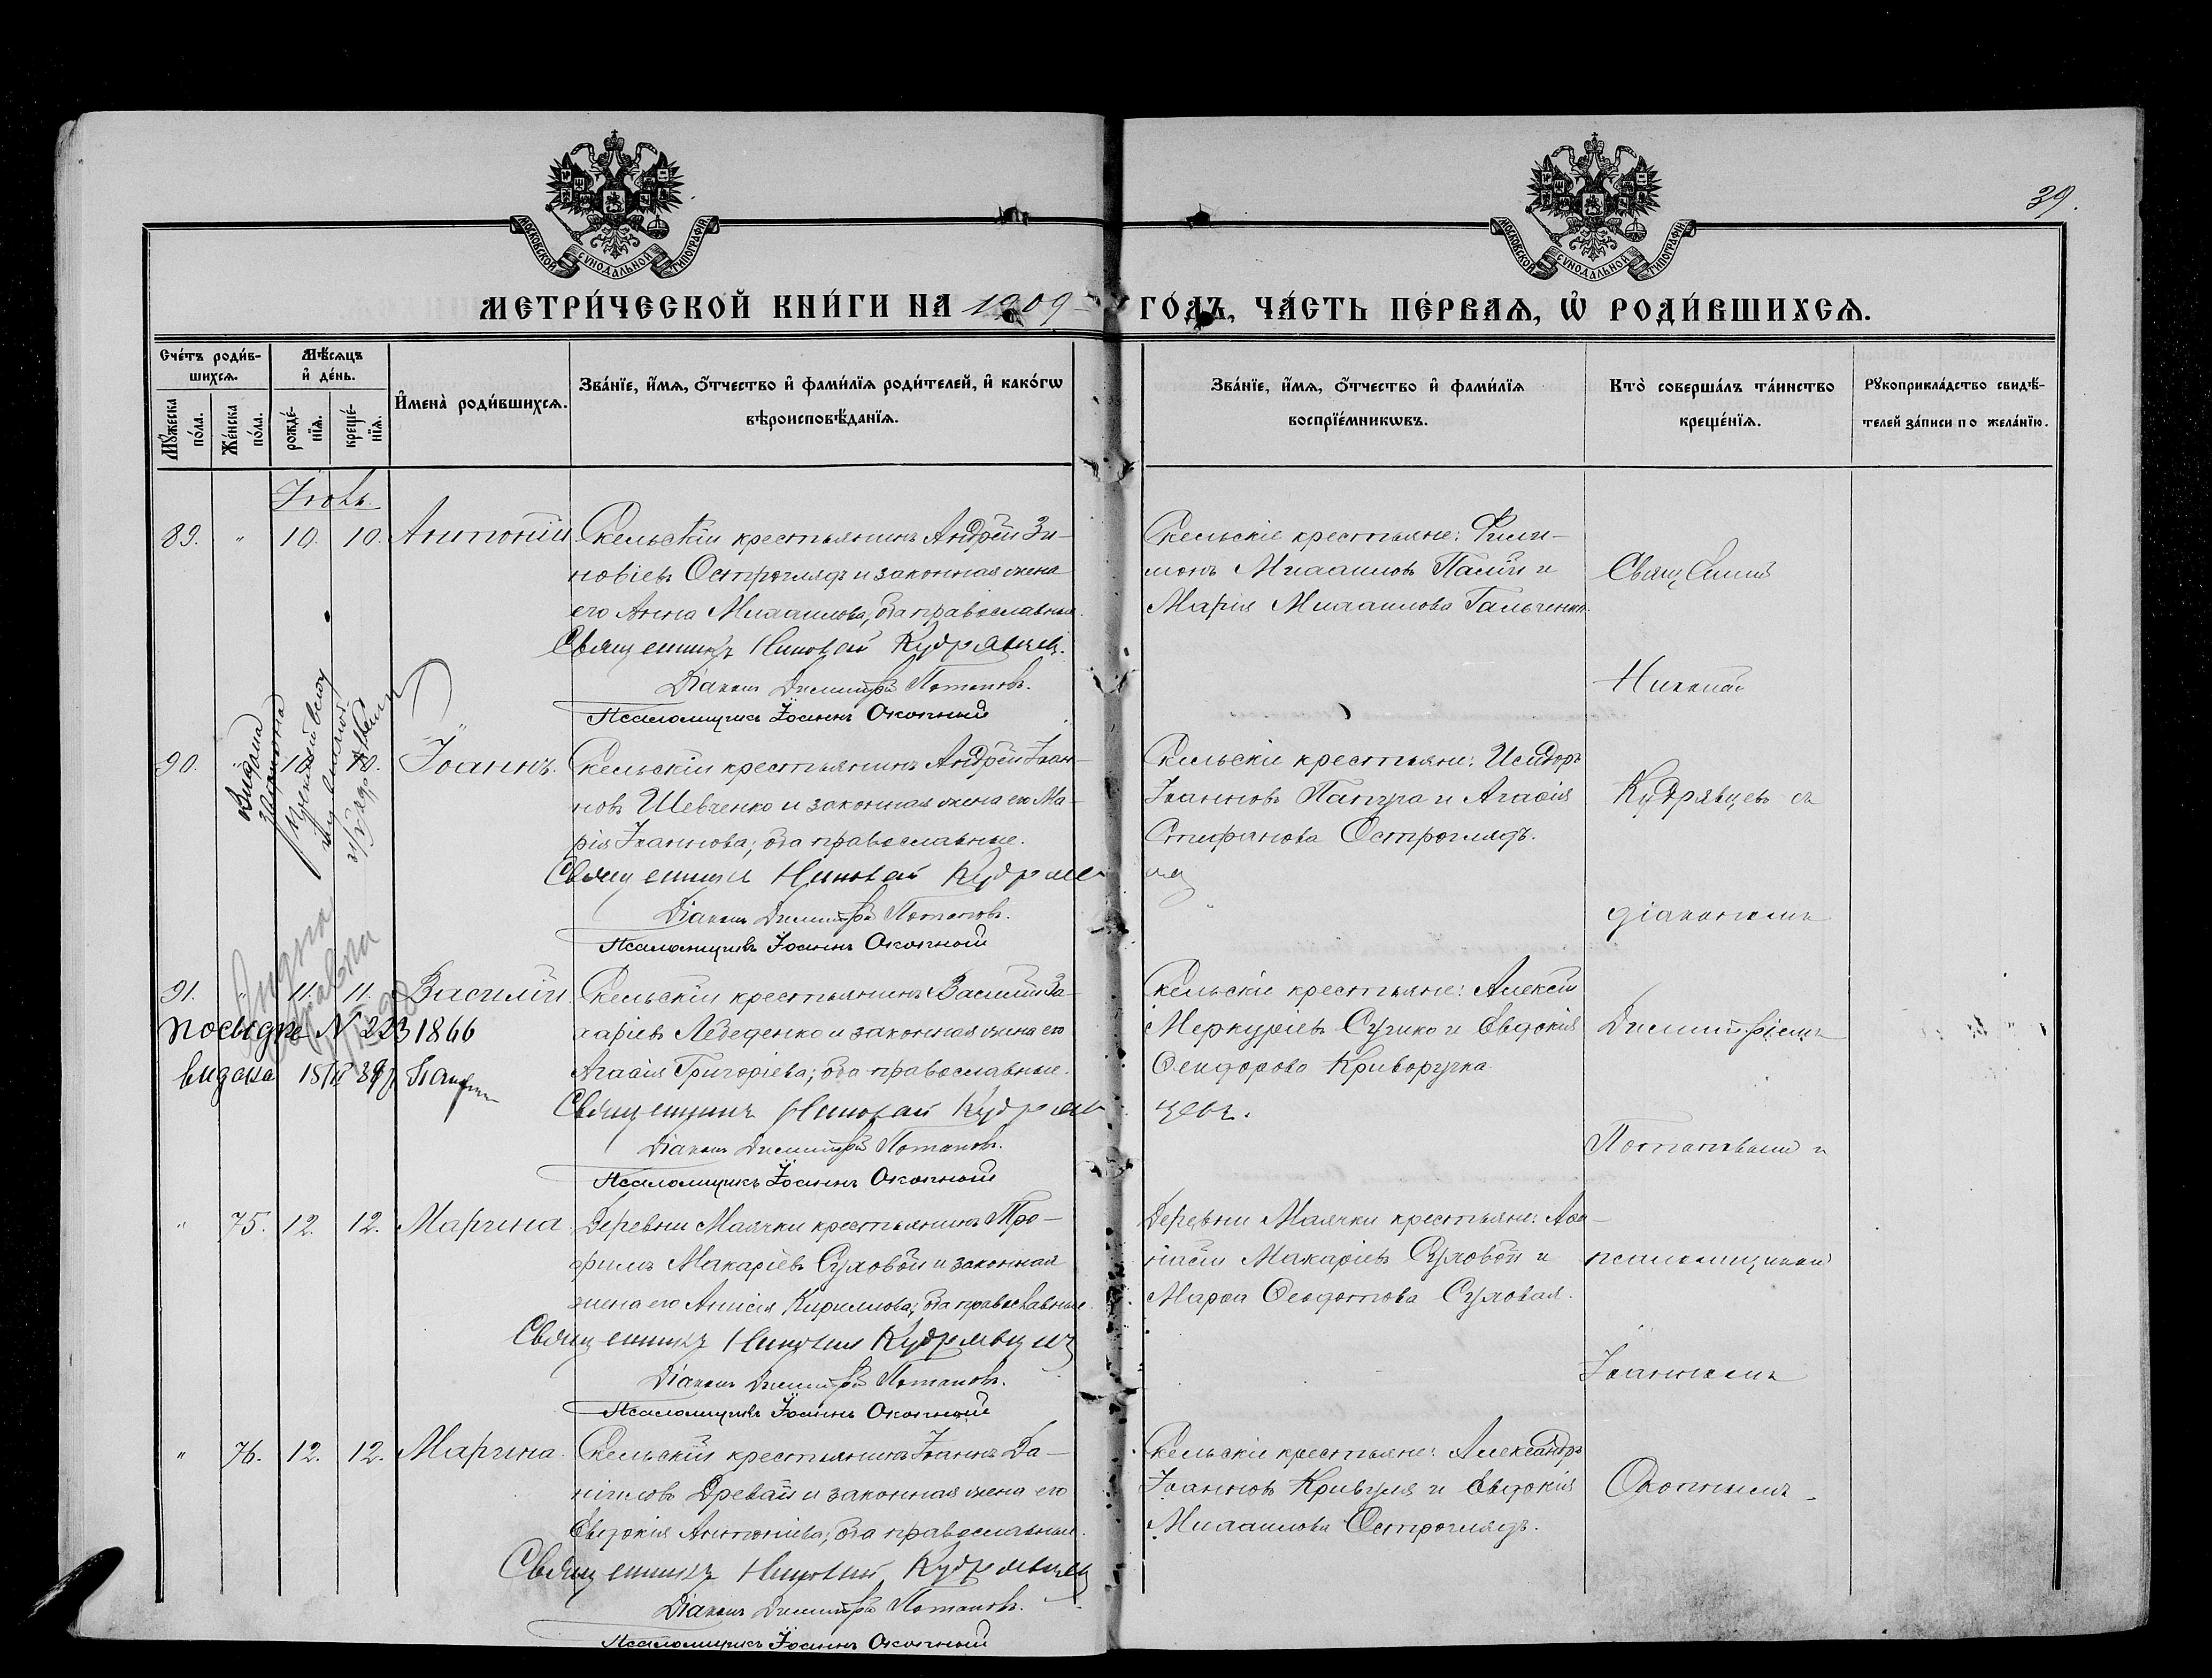 39.
МОСКОВСКОЙ СУНОДАЛЬНОЙ ТИПОГРАФІИ
МОСКОВСКОЙ СУНОДАЛЬНОЙ ТИПОГРАФІИ
МЕТРИ́ЧЕСКОЙ КНИ́ГИ НА 1909 ГО́ДЪ, ЧА́СТЬ ПЕ́РВАѦ, Ѡ҆ РОДИ́ВШИХСѦ.
Сче́тъ роди́в-
шихсѧ.
Мꙋ́жеска по́ла.
Же́нска по́ла.
Мѣ́сѧцъ
и҆ де́нь.
рожде́-
нїѧ.
креще́-
нїѧ.
И҆мена̀ роди́вшихсѧ.
Зва́нїе, и҆́мѧ, ѻ҆́тчество и҆ фами́лїѧ роди́телей, и҆ како́гѡ
вѣроисповѣ́данїѧ.
Зва́нїе, и҆́мѧ, ѻ҆́тчество и҆ фами́лїѧ
воспрїе́мникѡвъ.
Кто̀ соверша́лъ та́инство
креще́нїѧ.
Рꙋкоприкла́дство свидѣ́-
телей за́писи по жела́нїю.
Іюль.
89. " 10. 10. Антоній
Скельскій крестьянинъ Андрей Зи-
новіевъ Остроглядъ и законная жена
его Анна Михаилова; оба православные.
Священникъ Николай Кудрявцевъ.
Діаконъ Димитрій Потаповъ.
Псаломщикъ Іоаннъ Окопный
Скельскіе крестьяне: Фили-
монъ Михаиловъ Палій и
Марія Михаилова Гальченко.
90. " 10. 10. Іоаннъ.
Скельскій крестьянинъ Андрей Іоан-
новъ Шевченко и законная жена его Ма-
рія Іоаннова; оба православные.
Священникъ Николай Кудрявцевъ
Діаконъ Димитрій Потаповъ.
Псаломщикъ Іоаннъ Окопный
Скельскіе крестьяне: Исидоръ
Іоанновъ Папуга и Агафія
Стефанова Остроглядъ.
91. " 11. 11. Василій
Скельскій крестьянинъ Василій За-
харіевъ Лебеденко и законная жена его
Агафія Григоріева; оба православные.
Священникъ Николай Кудряв-
цевъ.
Діаконъ Димитрій Потаповъ.
Псаломщикъ Іоаннъ Окопный
Скельскіе крестьяне: Алексій
Меркуріевъ Сушко и Евдокія
Ѳеодорова Криворучка
№ 223 1866
видана
" 75. 12. 12. Марина.
Деревни Маячки крестьянинъ Тро-
фимъ Макаріевъ Суховой и законная
жена его Анисія Кириллова; оба православные.
Священникъ Николай Кудрявцевъ
Діаконъ Димитрій Потаповъ.
Псаломщикъ Іоаннъ Окопный
Деревни Маячки крестьяне: Аѳа-
насій Макаріевъ Суховой и
Марѳа Ѳеодотова Суховая.
" 76. 12. 12. Марина.
Скельскій крестьянинъ Іоаннъ Да-
ніиловъ Древаль и законная жена его
Евдокія Антоніева; оба православные.
Священникъ Николай Кудрявцевъ
Діаконъ Димитрій Потаповъ.
Псаломщикъ Іоаннъ Окопный
Скельскіе крестьяне: Александръ
Іоанновъ Кривуля и Евдокія
Михаилова Остроглядъ.
Священникъ
Николай
Кудрявцевъ съ
діакономъ
Димитріемъ
Потаповымъ и
псаломщикомъ
Іоанномъ
Окопнымъ.